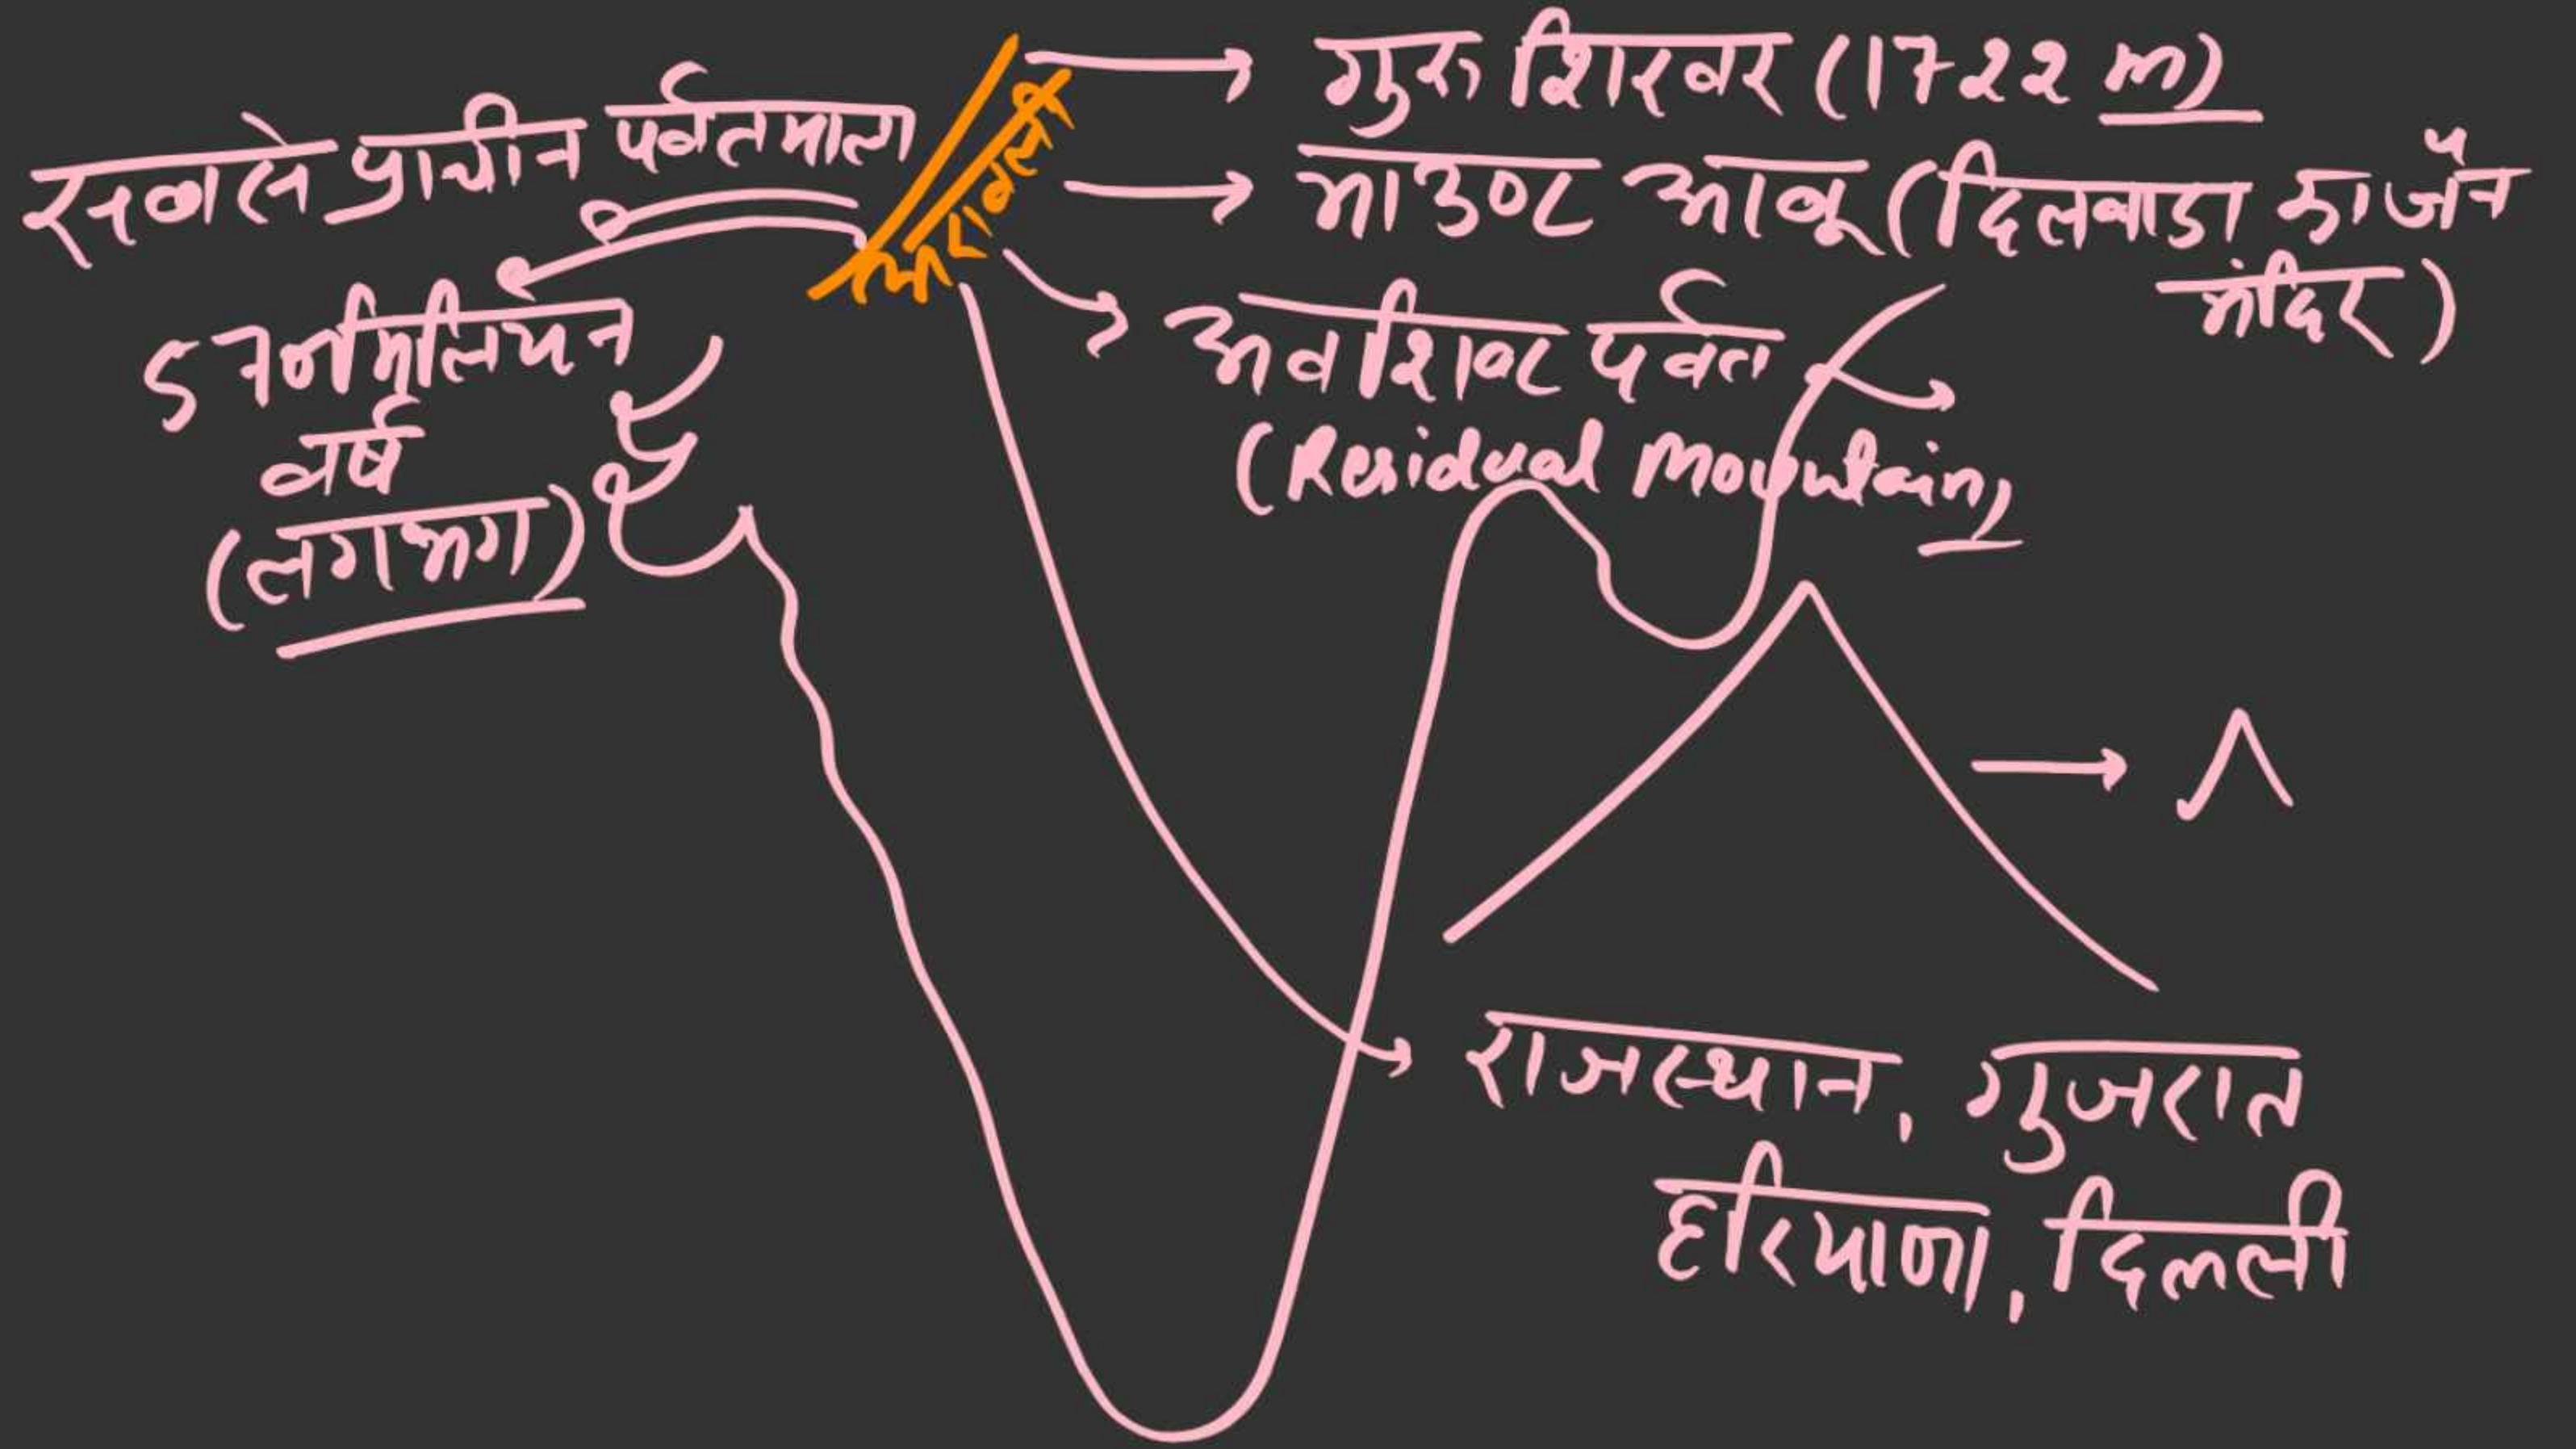 सबसे प्राचीन पर्वतमाला
570 मिलियन
वर्ष
(लगभग)
अरावली
गुरु शिखर (1722 m)
माउण्ट आबू (दिलवाडा का जैन
मंदिर)
अवशिष्ट पर्वत
(Residual Mountain)
राजस्थान, गुजरात
हरियाणा, दिल्ली